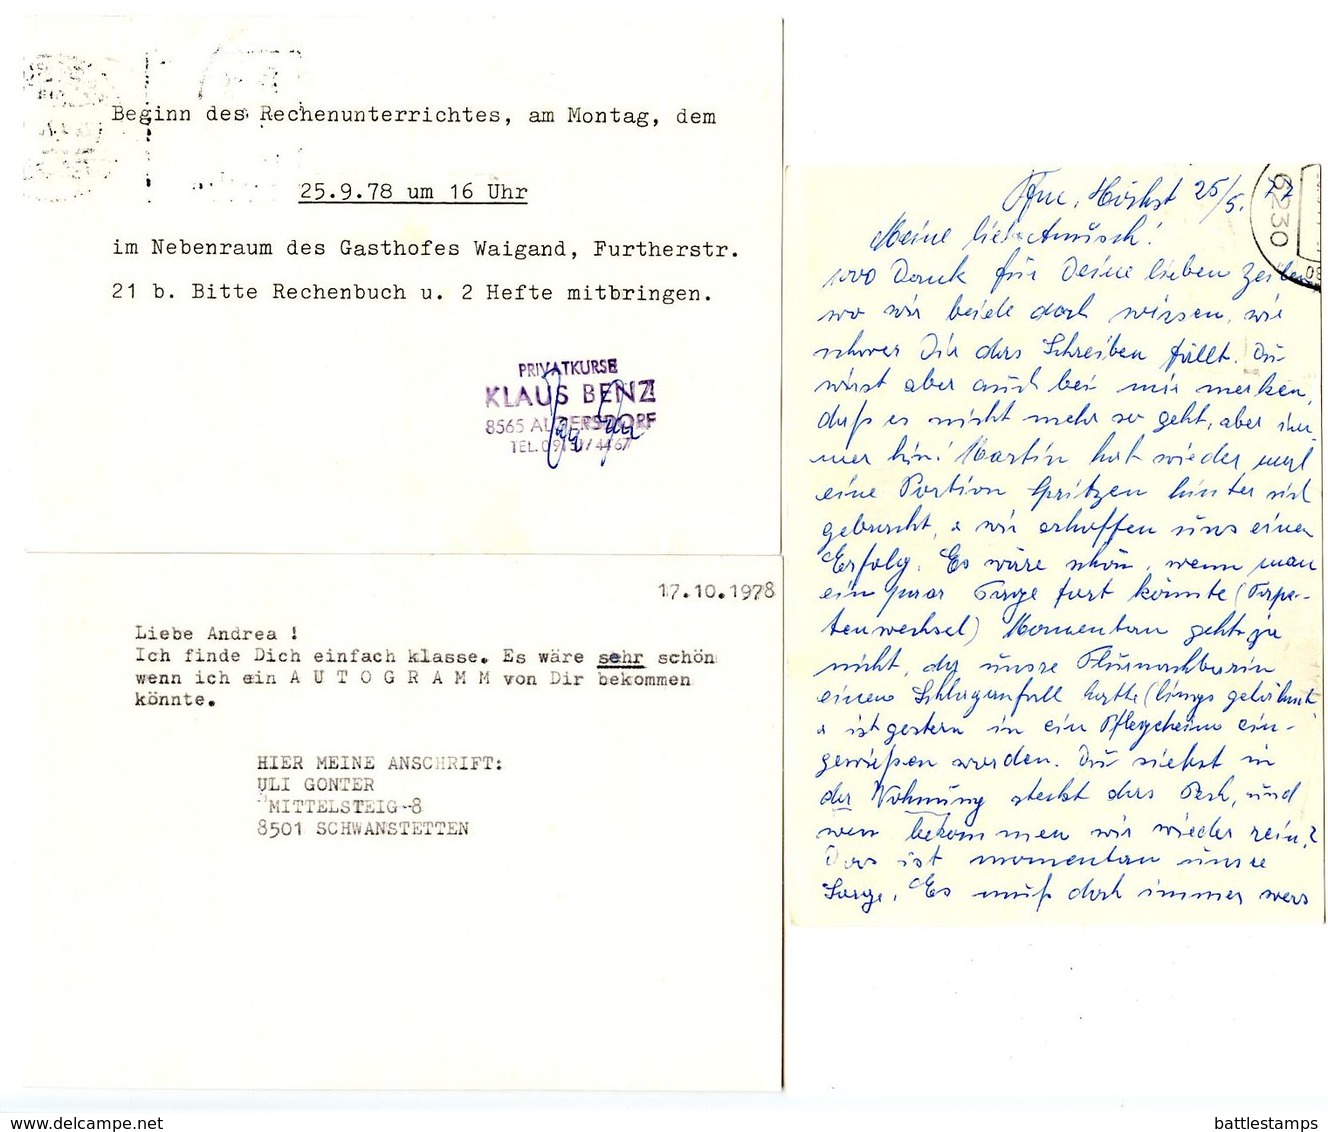 Beginn des Rechenunterrichtes, am Montag, dem
25.9.78 um 16 Uhr
im Nebenraum des Gasthofes Waigand, Furtherstr.
21 b. Bitte Rechenbuch u. 2 Hefte mitbringen.
PRIVATKURSE
KLAUS BENZ
8565
TEL.
17.10.1978
Liebe Andrea !
Ich finde Dich einfach klasse. Es wäre sehr schön
wenn ich ein A U T O G R A M M von Dir bekommen
könnte.
HIER MEINE ANSCHRIFT:
ULI GONTER
MITTELSTEIG 8
8501 SCHWANSTETTEN
6230
Höchst 25/5. 77
Meine liebe
1000 Dank für Deine lieben Zeilen,
wo wir beide doch wissen, wie
schwer Dir das Schreiben fällt. Du
wirst aber auch bei mir merken,
daß es nicht mehr so geht, aber im-
mer hin! Martin hat wieder mal
eine Portion Spritzen hinter sich
gebracht, & wir erhoffen uns einen
Erfolg. Es wäre schön, wenn man
ein paar Tage fort könnte (Tape-
tenwechsel) Momentan geht's ja
nicht, da unsre Flurnachbarin
einen Schlaganfall hatte (links gelähmt
& ist gestern in ein Pflegeheim ein-
gewießen worden. Du siehst in
der Wohnung steckt das Pech, und
wen bekommen wir wieder rein?
Das ist momentan unsre
Sorge. Es muß doch immer was
battlestamps